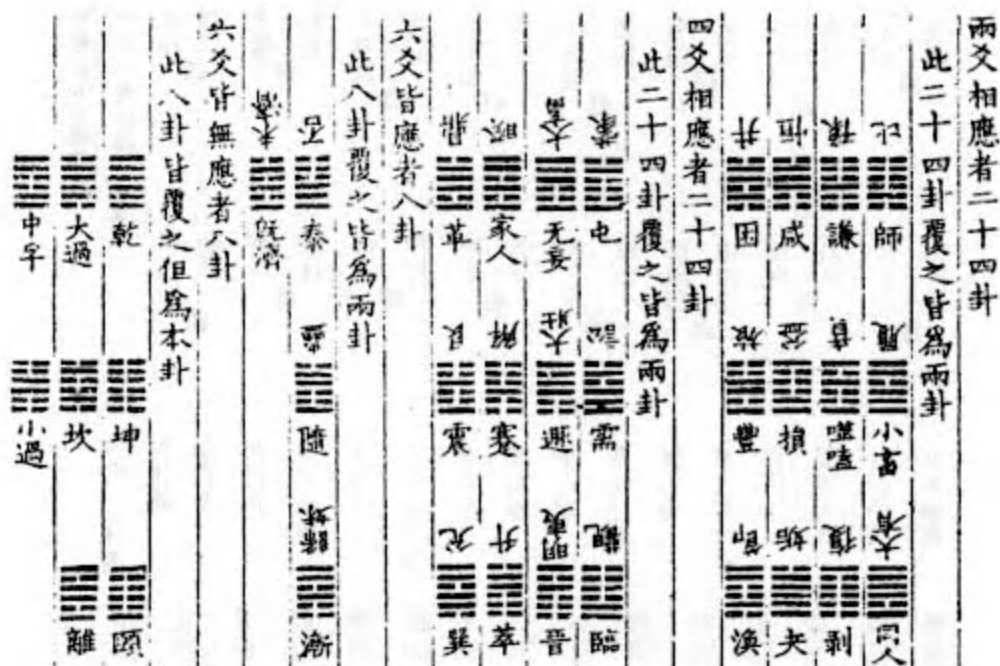 兩爻相應者二十四卦
此二十四卦覆之皆爲兩卦
比 師 履 小畜 大有 同人
豫 謙 賁 噬嗑 復 剝
恒 咸 益 損 姤 夬
井 困 旅 豐 節 渙
四爻相應者二十四卦
此二十四卦覆之皆爲兩卦
蒙 屯 訟 需 觀 臨
大畜 无妄 大壯 遯 明夷 晉
睽 家人 解 蹇 升 萃
鼎 革 艮 震 兌 巽
六爻皆應者八卦
此八卦覆之皆爲兩卦
否 泰 蠱 隨 歸妹 漸
未濟 既濟
六爻皆無應者八卦
此八卦皆覆之但爲本卦
乾 坤 頤
大過 坎 離
中孚 小過